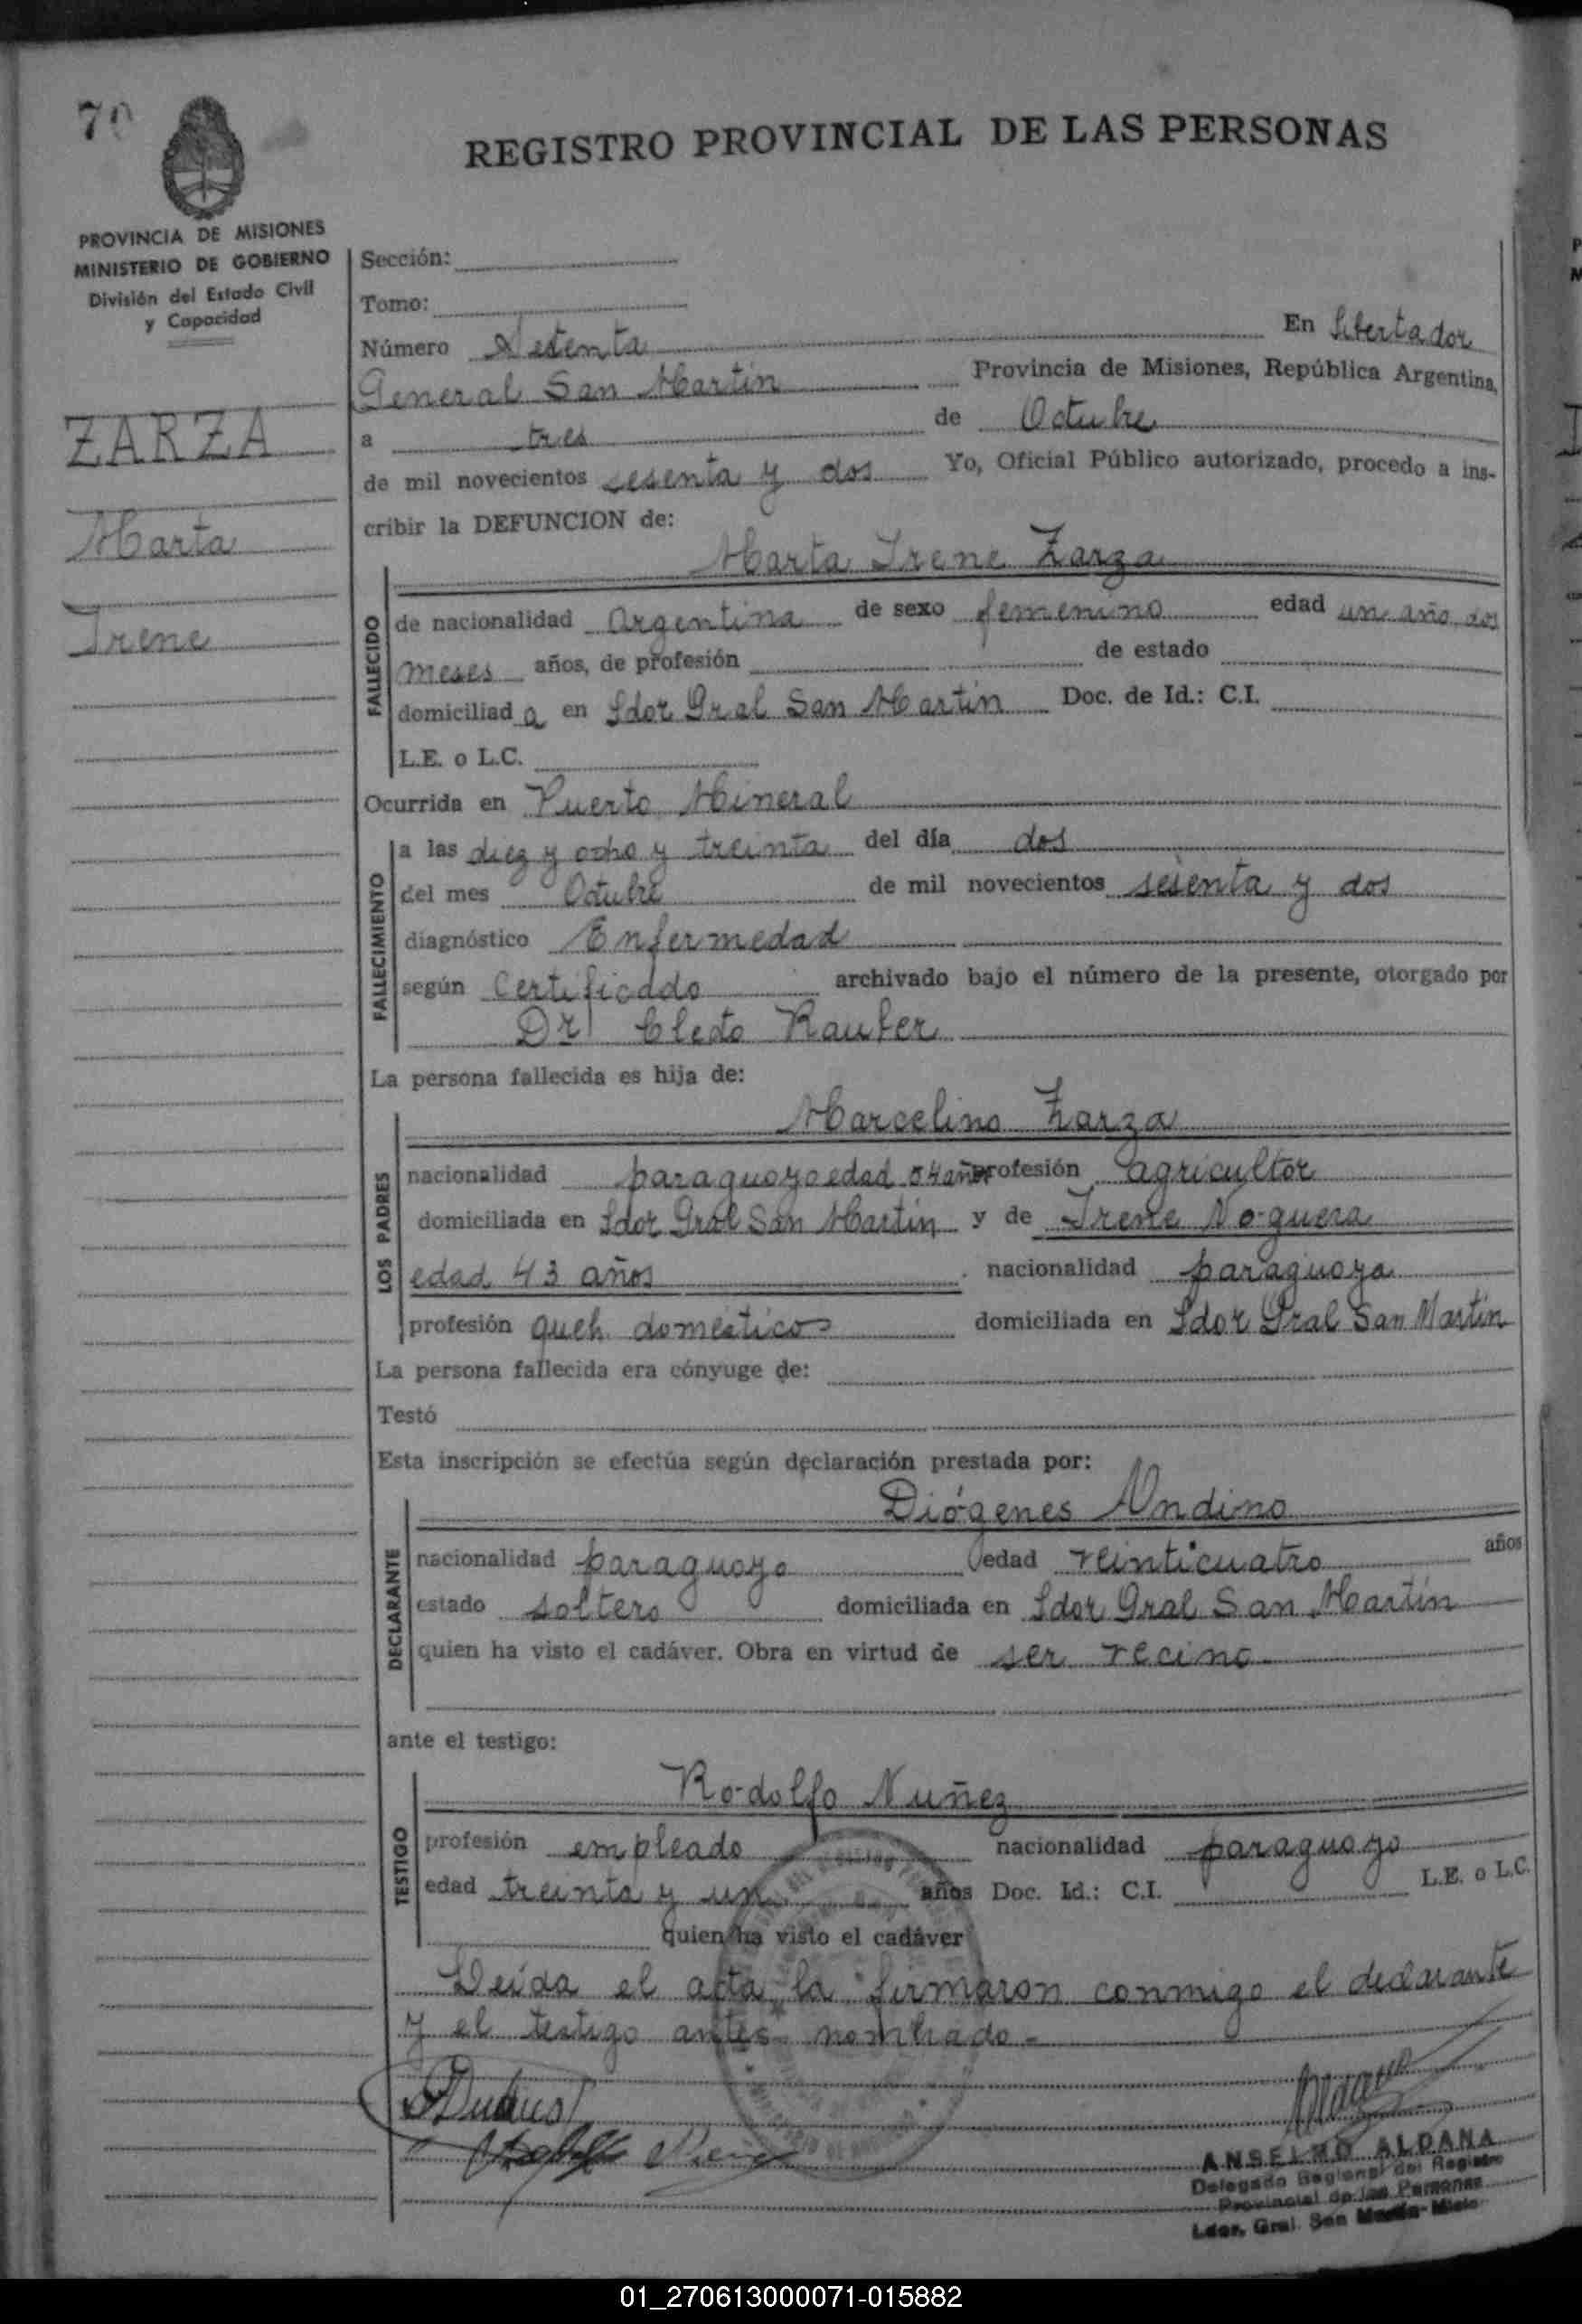 70
REGISTRO PROVINCIAL DE LAS PERSONAS
PROVINCIA DE MISIONES
MINISTERIO DE GOBIERNO
División del Estado Civil
y Capacidad
ZARZA
Marta
Irene
Sección:
Tomo:
Número Setenta En Libertador
General San Martín Provincia de Misiones, República Argentina,
a tres de Octubre
de mil novecientos sesenta y dos Yo, Oficial Público autorizado, procedo a ins-
cribir la DEFUNCION de:
Marta Irene Zarza
FALLECIDO
de nacionalidad Argentina de sexo femenino edad un año dos
meses años, de profesión de estado
domiciliad a en Ldor Gral San Martín Doc. de Id.: C.I.
L.E. o L.C.
Ocurrida en Puerto Mineral
FALLECIMIENTO
a las diez y ocho y treinta del día dos
del mes Octubre de mil novecientos sesenta y dos
diagnóstico Enfermedad
según Certificado archivado bajo el número de la presente, otorgado por
Dr Cleto Rauber
La persona fallecida es hija de:
Marcelino Zarza
LOS PADRES
nacionalidad paraguayo edad 54 años profesión agricultor
domiciliada en Ldor Gral San Martín y de Irene Noguera
edad 43 años nacionalidad paraguaya
profesión queh domésticos domiciliada en Ldor Gral San Martín
La persona fallecida era cónyuge de:
Testó
Esta inscripción se efectúa según declaración prestada por:
Diógenes Undino
DECLARANTE
nacionalidad paraguayo edad veinticuatro años
estado soltero domiciliada en Ldor Gral San Martín
quien ha visto el cadáver. Obra en virtud de ser vecino
ante el testigo:
Rodolfo Nuñez
TESTIGO
profesión empleado nacionalidad paraguayo
edad treinta y un años Doc. Id.: C.I. L.E. o L.C.
quien ha visto el cadáver
Leída el acta la firmaron conmigo el declarante
y el testigo antes nombrado-
ANSELMO ALDANA
Delegado Regional del Registro
Provincial de las Personas
Ldor. Gral. San Martín - Mnes
01_270613000071-015882